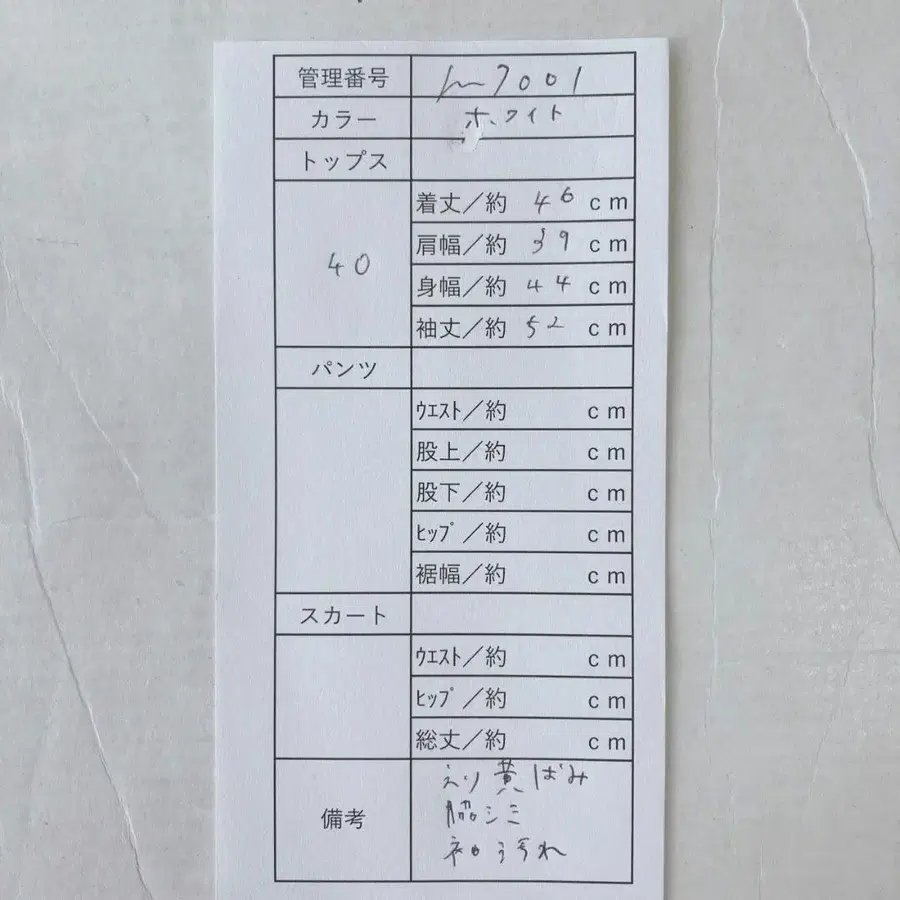 管理番号 7001
カラー ホワイト
トップス
40
着丈／約 46 cm
肩幅／約 39 cm
身幅／約 44 cm
袖丈／約 52 cm
パンツ
ｳｴｽﾄ／約 cm
股上／約 cm
股下／約 cm
ﾋｯﾌﾟ／約 cm
裾幅／約 cm
スカート
ｳｴｽﾄ／約 cm
ﾋｯﾌﾟ／約 cm
総丈／約 cm
備考
えり黄ばみ
脇シミ
袖汚れ